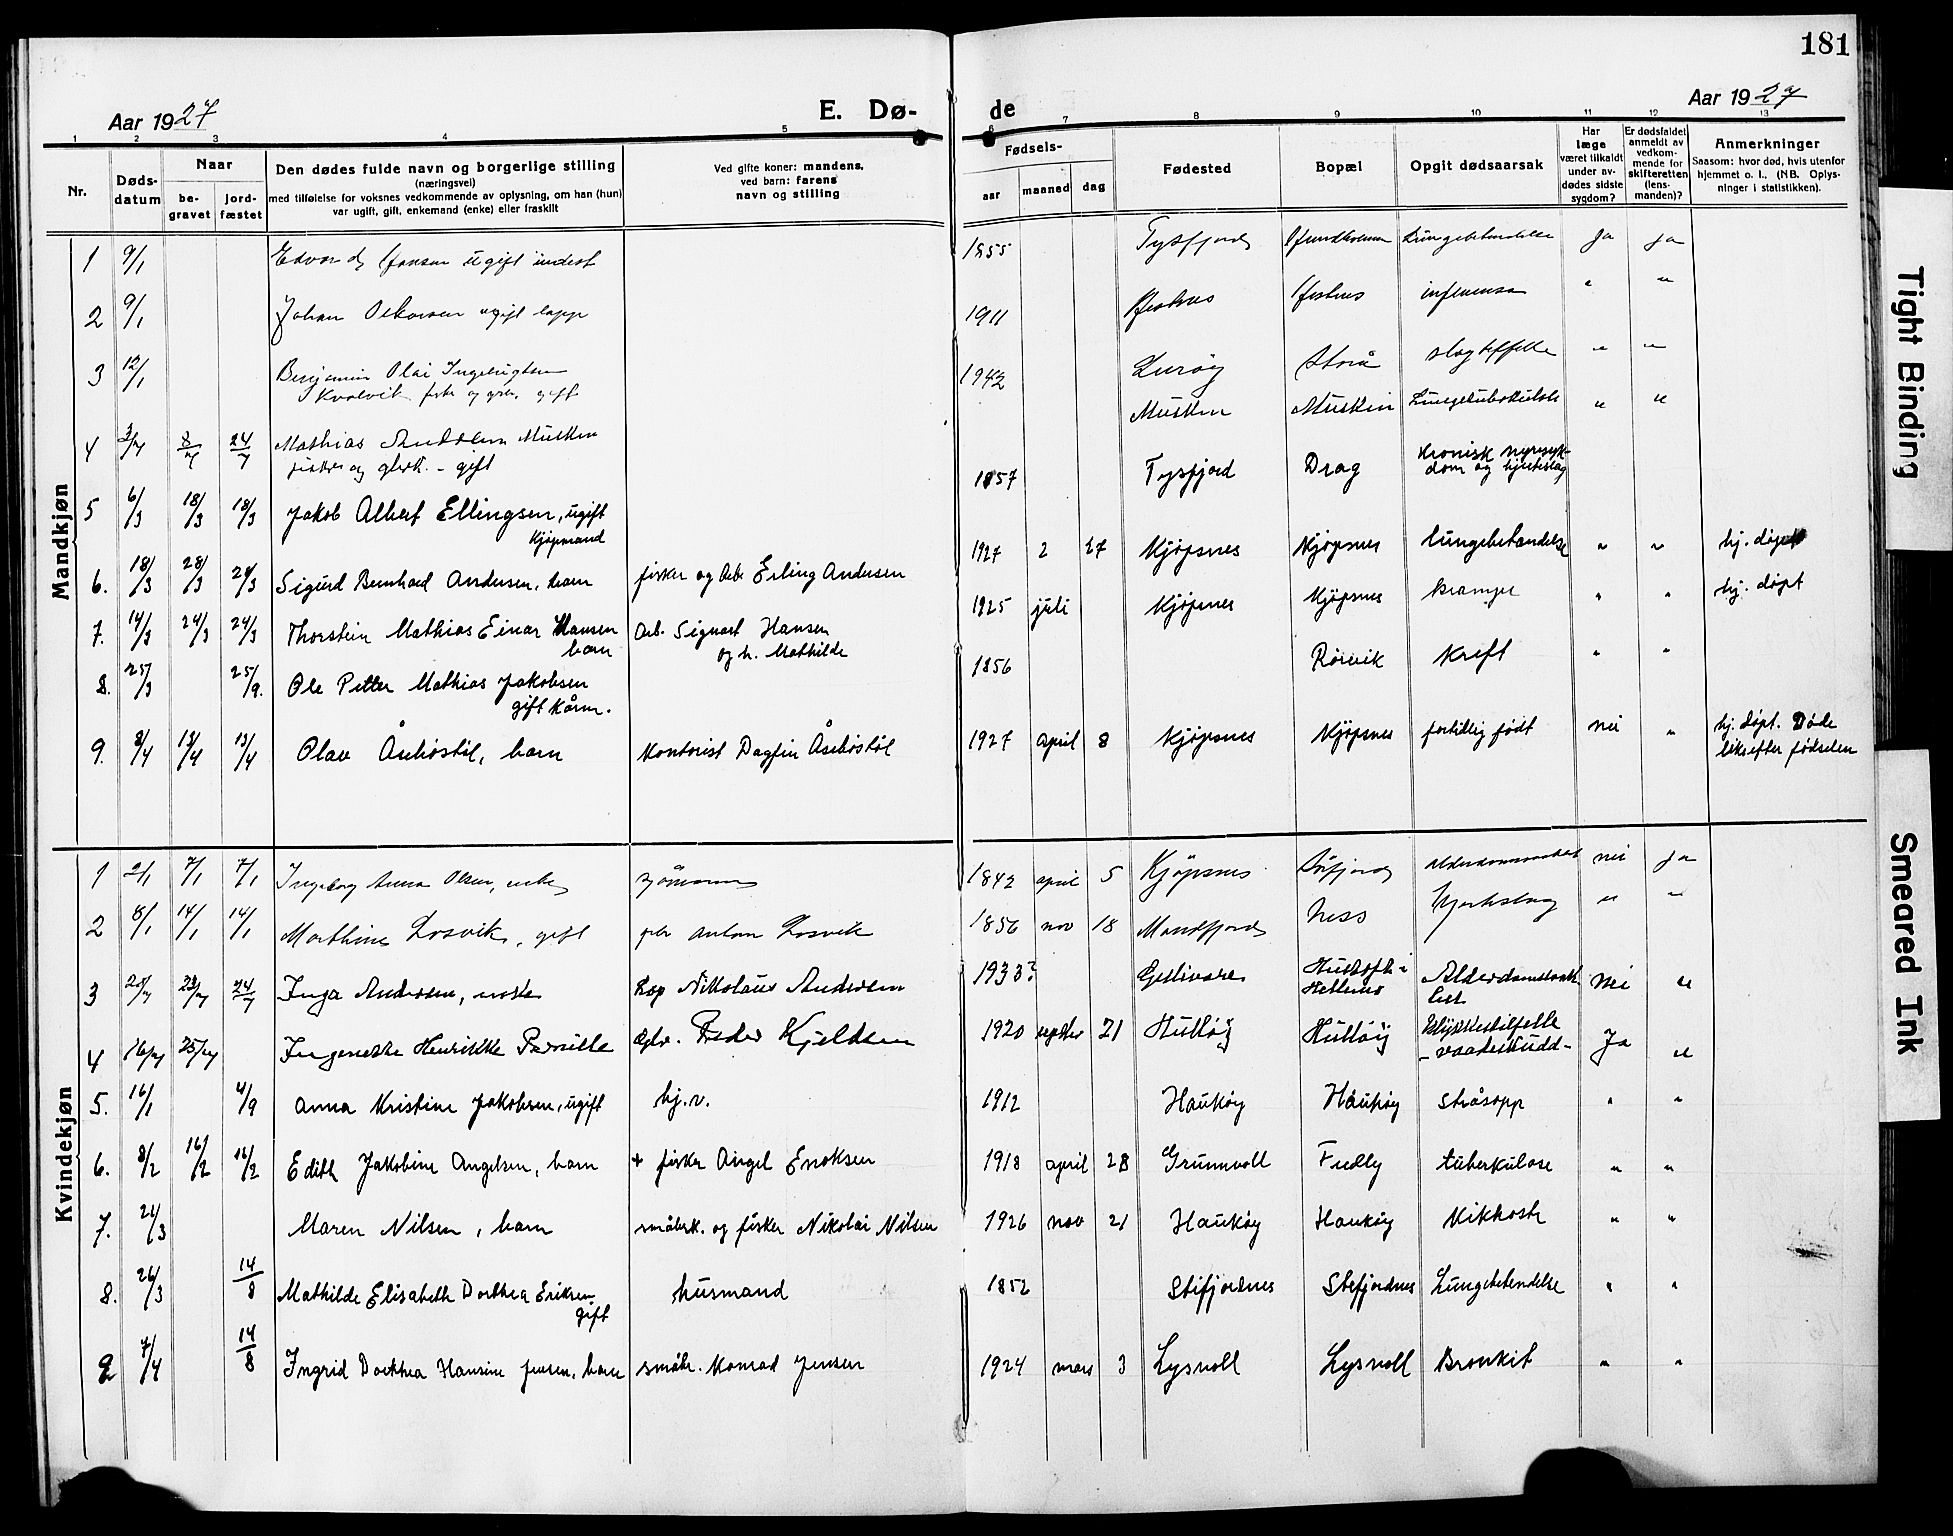 181
Aar 1927
E. Dø- de
Aar 1927
1 2 3 4 5 6 7 8 9 10 11 12 13
Nr.
Døds-
datum
Naar
be-
gravet
jord-
fæstet
Den dødes fulde navn og borgerlige stilling
(næringsvei)
med tilføielse for voksnes vedkommende av oplysning, om han (hun)
var ugift, gift, enkemand (enke) eller fraskilt
Ved gifte koner: mandens,
ved barn: farens
navn og stilling
Fødsels-
aar
maaned
dag
Fødested
Bopæl
Opgit dødsaarsak
Har
læge
været tilkaldt
under av-
dødes sidste
sygdom?
Er dødsfaldet
anmeldt av
vedkom-
mende for
skifteretten
(lens-
manden)?
Anmerkninger
Saasom: hvor død, hvis utenfor
hjemmet o. l., (NB. Oplys-
ninger i statistikken).
Mandkjøn
1 9/1 ugift 1855 Tysfjord Lungebetendelse Ja Ja
2 9/1 Johan Oskarsen ugift lapp 1911 influensa " "
3 12/1 Benjamin Olai
Kvalvik gift Lurøy Storå slagtilfelle " "
4 8/7 24/7 Mathias Musken
fisker og - gift Musken Muskin Lungetuberkulose " "
5 6/3 18/3 18/3 Jakob Albert Ellingsen, ugift
Kjøpmand 1857 Tysfjord Drag Kronisk nyresyk-
dom og hjerteslag
6. 18/3 28/3 28/3 Sigurd Bernhard Andersen, barn fisker og Arb. Erling Andersen 1927 2 27 Kjøpsnes Kjøpsnes lungebetendelse " " hj. døpt
7. 14/3 24/3 24/3 Thorstein Mathias Einar Hansen
barn Arb. Signart Hansen
og h. Mathilde 1925 juli Kjøpsnes Kjøpsnes krampe " " hj. døpt
8. 25/3 25/9. Ole Petter Mathias Jakobsen
gift kårm. 1856 Rørvik Kreft " "
9. 8/4 13/4 13/4 Olav Åsebøstøl, barn Kontorist Dagfin Åsebøstøl 1927 april 8 Kjøpsnes Kjøpsnes fortidlig født nei " hj. døpt. Døde
like efter fødselen
Kvindekjøn
1 2/1 7/1 7/1 Ingeborg Anna Olsen, enke 1842 april 5 Kjøpsnes Sørfjord nei Ja
2 8/1 14/1 14/1 Marthine Losvik, gift Anton Losvik 1856 nov 18 Mandfjord Ness Hjerteslag " "
3 24/7 Inga Andersen, enke Lap Nikolaus Andersen 1933? Gellivare
Hellemo Alderdomssvak-
het Nei "
4 16/7 25/7 Ingeneske Henrikke Pernille Gbr. Peder Kjeldsen 1920 septbr 21 Hulløy Hulløy Ulykkestilfelle
- vaadeskudd - Ja "
5. 16/1 4/9 Anna Kristine Jakobsen, ugift hj. v. 1912 Haukøy Haukøy Stråsopp " "
6. 8/2 16/2 16/2 Edith Jakobine Angelsen, barn + fisker Angel Enoksen 1918 april 28 Grunnvoll tuberkulose " "
7. 24/3 Maren Nilsen, barn småbrk. og fisker Nikolai Nilsen 1926 nov 21 Haukøy Haukøy Kikhoste " "
8. 26/3 14/8 Mathilde Elisabeth Dorthea Eriksen
gift husmand 1852 Stefjordnes Stefjordnes Lungebetendelse " "
9 7/4 14/8 Ingrid Dorthea Hansine Jensen, barn småbr. Konrad Jensen 1924 mars 3 Lysvoll Lysvoll Bronkit " "
Tight Binding
Smeared Ink